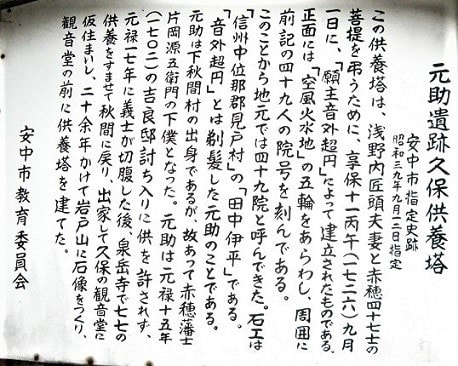 元助遺跡久保供養塔
安中市指定史跡
昭和三九年九月二日指定
この供養塔は、浅野内匠頭夫妻と赤穂四十七士の
菩提を弔うために、享保十一丙午(一七二六)九月
一日に、「願主音外超円」によって建立されたものである。
正面には「空風火水地」の五輪をあらわし、周囲に
前記の四十九人の院号を刻んである。
このことから地元では四十九院と呼んできた。石工は
「信州中位那郡見戸村」の「田中伊平」である。
「音外超円」とは剃髪した元助のことである。
元助は下秋間村の出身であるが、故あって赤穂藩士
片岡源五衛門の下僕となった。元助は元禄十五年
(一七〇二)の吉良邸討ち入りに供を許されず、
元禄一七年に義士が切腹した後、泉岳寺で七七の
供養をすませて秋間に戻り、出家して久保の観音堂に
仮住まいし、二十余年かけて岩戸山に石像をつくり、
観音堂の前に供養塔を建てた。
安中市教育委員会